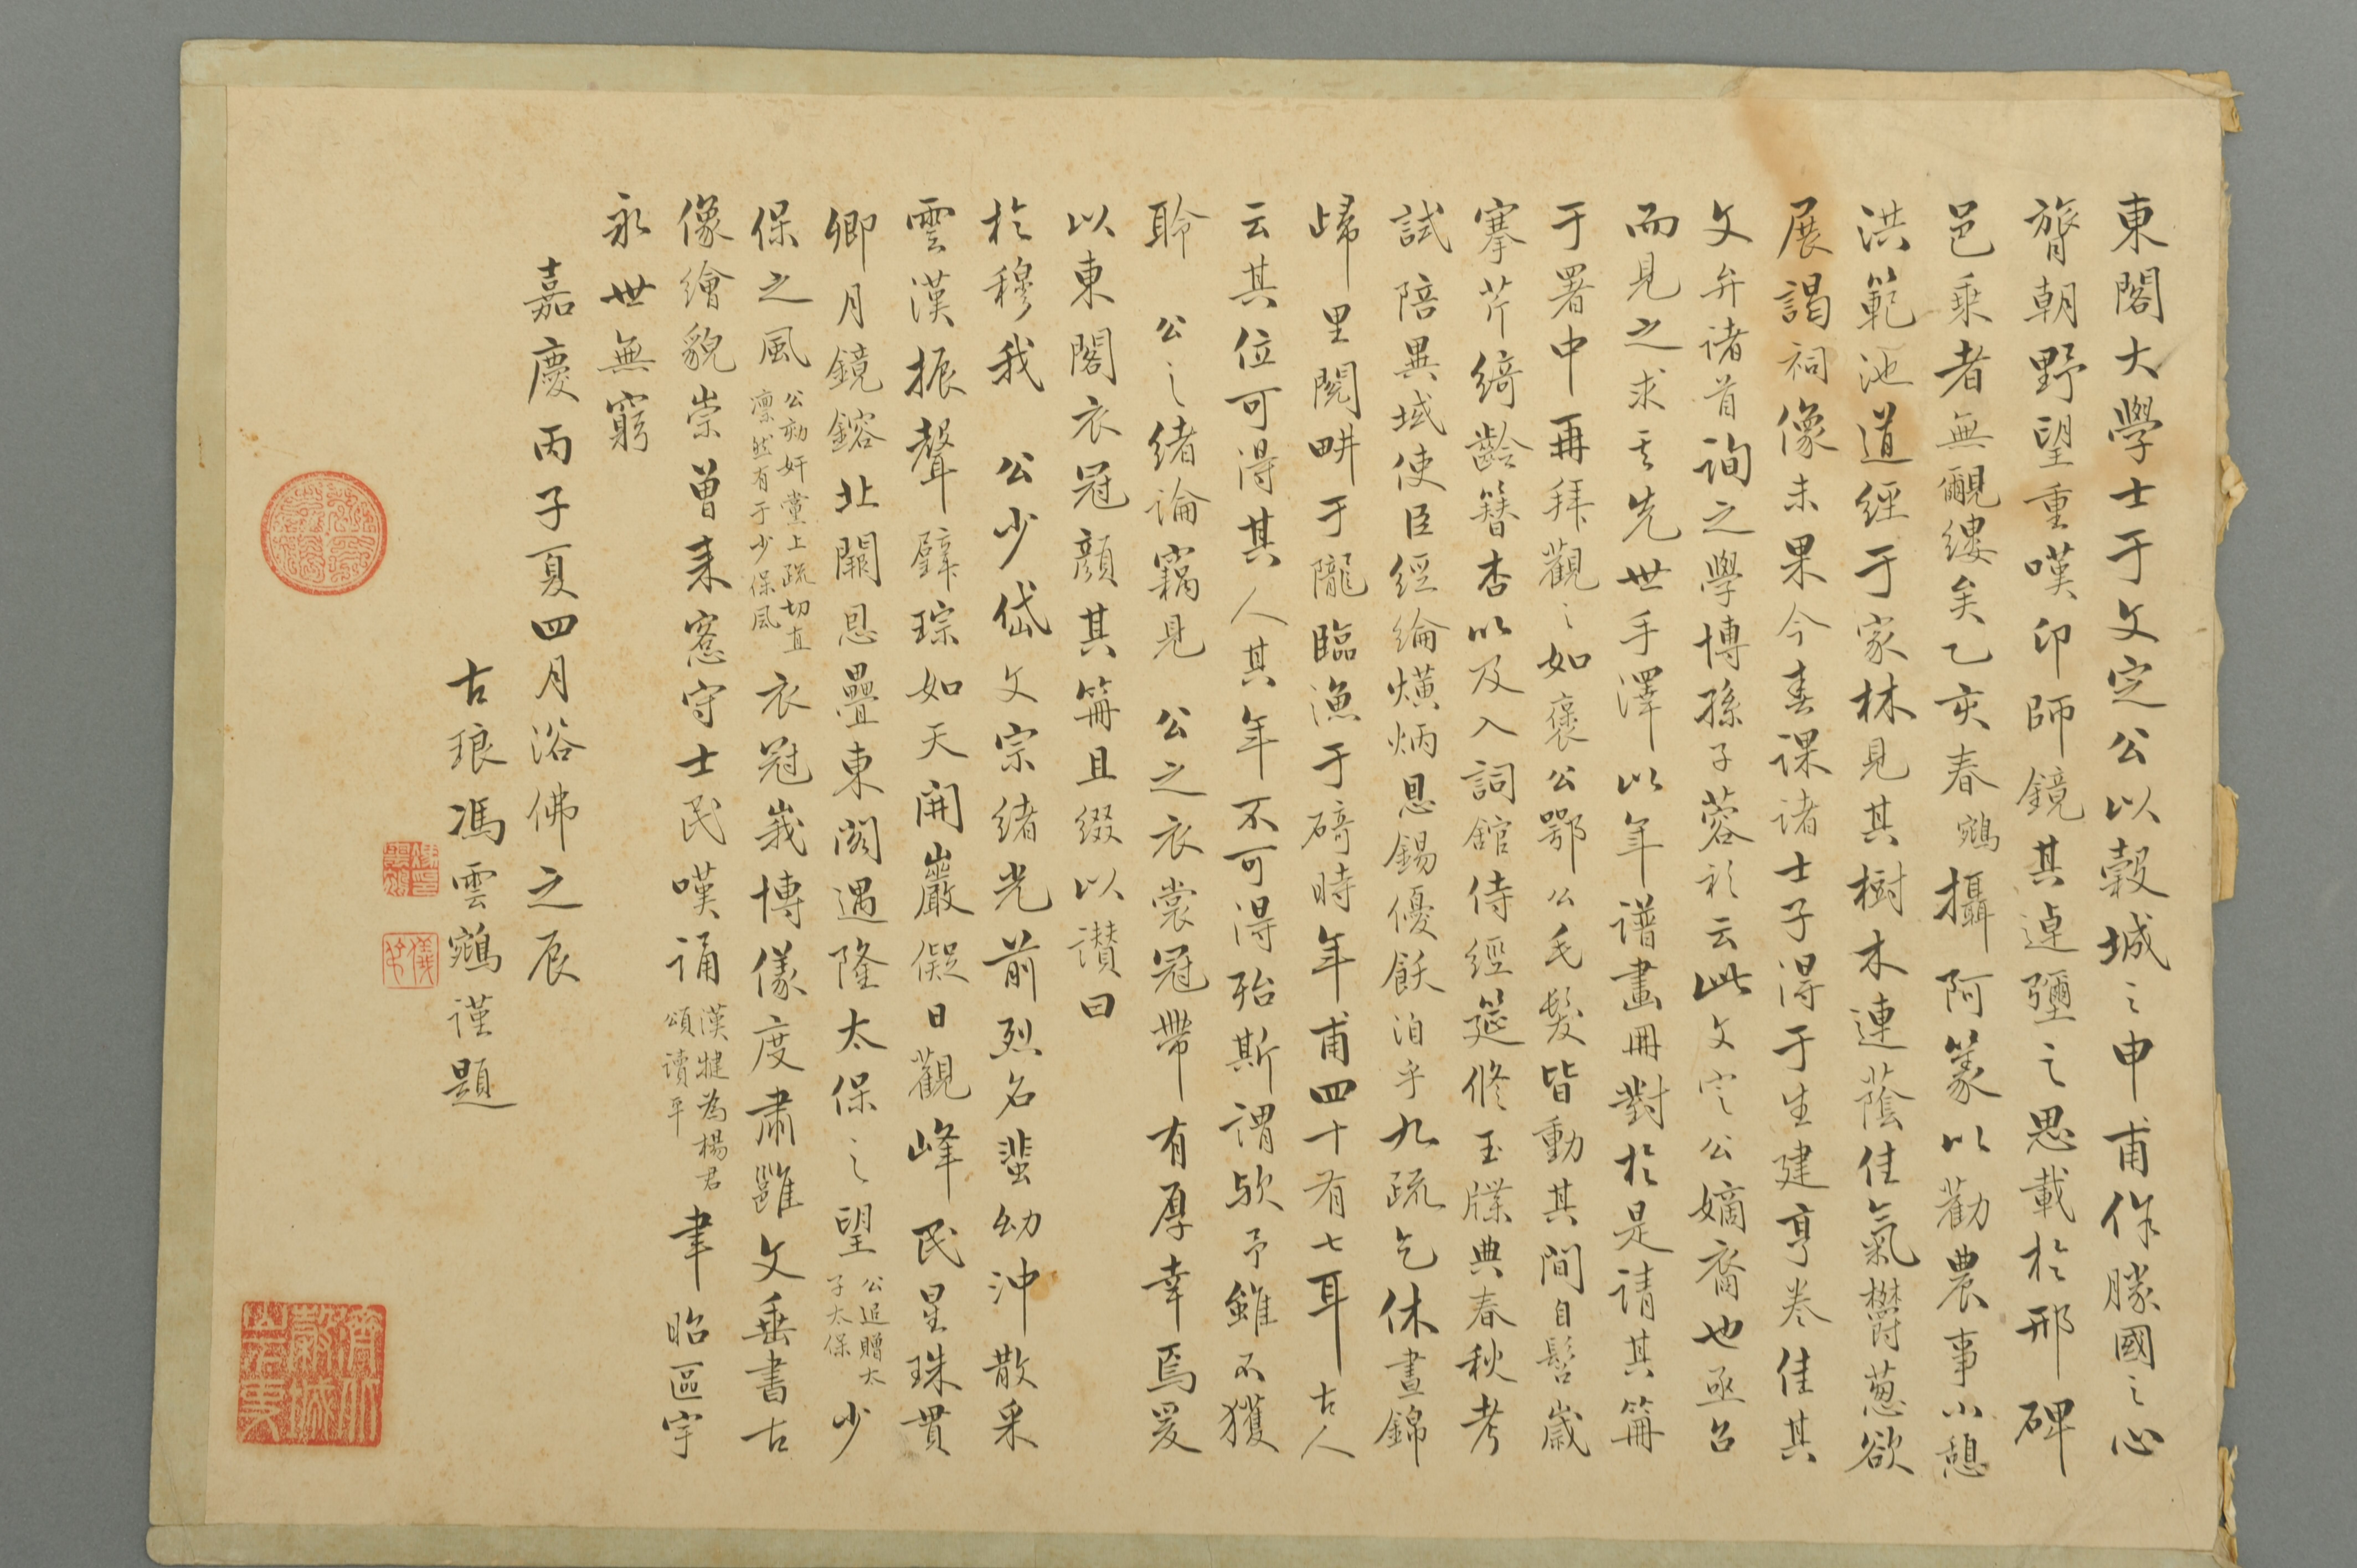 東閣大學士于文定公以穀城之申甫作勝國之心
膂朝野望重嘆印師鏡其逴彊之思載於邢碑
邑乘者無覼縷矣乙亥春鵷攝阿篆以勸農事小憩
洪範池道經于家林見其樹木連蔭佳氣欝蔥欲
展謁祠像未果今春課諸士子得于生建亨卷佳其
文弁诸首詢之學博孫子蓉衫云此文定公嫡裔也亟召
而見之求其先世手澤以年谱畫冊對於是请其篇
于署中再拜觀之如褒公鄂公毛髮皆動其間自髫歲
搴芹綺齡簪杏以及入詞舘侍經筵修玉牒典春秋考
試陪異域使臣經綸爌炳恩錫優飫洎乎九疏乞休晝錦
歸里閱畊于隴臨漁于碕時年甫四十有七耳古人
云其位可得其人其年不可得殆斯謂欤予雖不獲
聆 公之绪論竊見 公之衣裳冠帶有厚幸焉爰
以東閣衣冠顔其篇且缀以讃曰
於穆我 公少岱文宗绪光前烈名蜚幼沖散采
雲漢振聲辟琮如天開巖儗日觀峰民星珠貫
卿月鏡鎔北闕恩疊東阁遇隆太保之望公追贈太子太保少
保之風公劾奸黨上疏切直凛然有于少保風衣冠峩博儀度肅雝文垂書古
像繪貌崇曽來窓守士民嘆诵漢犍為楊君頌讀平聿昭區宇
永世無窮
嘉慶丙子夏四月浴佛之辰
古琅馮雲鵷谨題